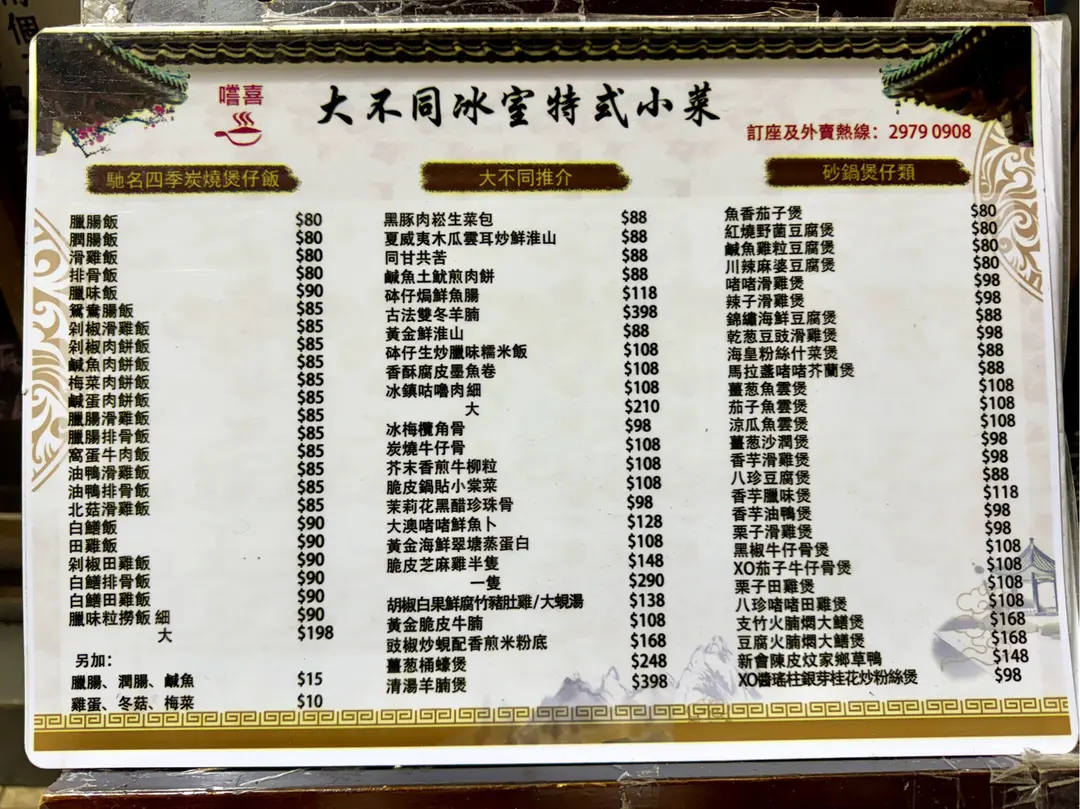 嚐喜
大不同冰室特式小菜
訂座及外賣熱線：2979 0908
馳名四季炭燒煲仔飯
臘腸飯 $80
潤腸飯 $80
滑雞飯 $80
排骨飯 $80
臘味飯 $90
鴛鴦腸飯 $85
剁椒滑雞飯 $85
剁椒肉餅飯 $85
鹹魚肉餅飯 $85
梅菜肉餅飯 $85
鹹蛋肉餅飯 $85
臘腸滑雞飯 $85
臘腸排骨飯 $85
窩蛋牛肉飯 $85
油鴨滑雞飯 $85
油鴨排骨飯 $85
北菇滑雞飯 $85
白鱔飯 $90
田雞飯 $90
剁椒田雞飯 $90
白鱔排骨飯 $90
白鱔田雞飯 $90
臘味粒撈飯 細 $90
大 $198
另加：
臘腸、潤腸、鹹魚 $15
雞蛋、冬菇、梅菜 $10
大不同推介
黑豚肉崧生菜包 $88
夏威夷木瓜雲耳炒鮮淮山 $88
同甘共苦 $88
鹹魚土魷煎肉餅 $88
砵仔焗鮮魚腸 $118
古法雙冬羊腩 $398
黃金鮮淮山 $88
砵仔生炒臘味糯米飯 $108
香酥腐皮墨魚卷 $108
冰鎮咕嚕肉細 $108
大 $210
冰梅欖角骨 $98
炭燒牛仔骨 $108
芥末香煎牛柳粒 $108
脆皮鍋貼小棠菜 $108
茉莉花黑醋珍珠骨 $98
大澳啫啫鮮魚卜 $128
黃金海鮮翠塘蒸蛋白 $108
脆皮芝麻雞半隻 $148
一隻 $290
胡椒白果鮮腐竹豬肚雞/大蜆湯 $138
黃金脆皮牛腩 $108
豉椒炒蜆配香煎米粉底 $168
薑葱桶蠔煲 $248
清湯羊腩煲 $398
砂鍋煲仔類
魚香茄子煲 $80
紅燒野菌豆腐煲 $80
鹹魚雞粒豆腐煲 $80
川辣麻婆豆腐煲 $80
啫啫滑雞煲 $98
辣子滑雞煲 $98
錦繡海鮮豆腐煲 $88
乾葱豆豉滑雞煲 $98
海皇粉絲什菜煲 $88
馬拉盞啫啫芥蘭煲 $88
薑葱魚雲煲 $108
茄子魚雲煲 $108
涼瓜魚雲煲 $108
薑葱沙潤煲 $98
香芋滑雞煲 $98
八珍豆腐煲 $88
香芋臘味煲 $118
香芋油鴨煲 $98
栗子滑雞煲 $98
黑椒牛仔骨煲 $108
XO茄子牛仔骨煲 $108
栗子田雞煲 $108
八珍啫啫田雞煲 $108
支竹火腩燜大鱔煲 $168
豆腐火腩燜大鱔煲 $168
新會陳皮炆家鄉草鴨 $148
XO醬瑤柱銀芽桂花炒粉絲煲 $98